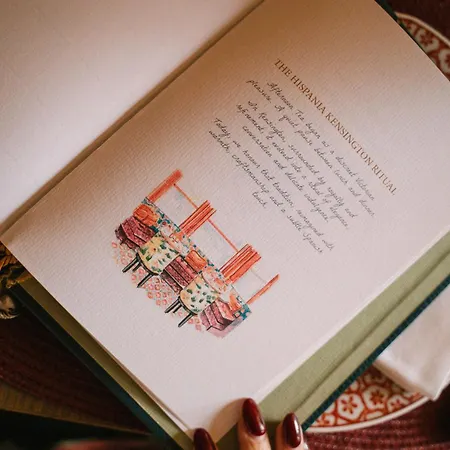 THE HISPANIA KENSINGTON RITUAL
Afternoon Tea began as a discreet Victorian
pleasure. A quiet pause between lunch and dinner.
In Kensington, surrounded by royalty and
refinement, it evolved into a ritual of elegance,
conversation and delicate indulgence.
Today, we honour that tradition reimagined with
warmth, craftsmanship and a subtle Spanish
touch.